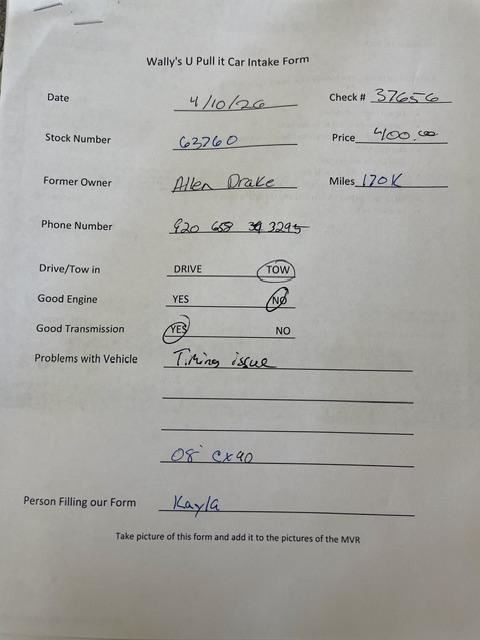 Wally's U Pull it Car Intake Form
Date 4/10/26 Check # 37656
Stock Number 63760 Price 400.00
Former Owner Allen Drake Miles 170K
Phone Number 920 658 3295
Drive/Tow in DRIVE TOW
Good Engine YES NO
Good Transmission YES NO
Problems with Vehicle Timing issue
08 CX90
Person Filling our Form Kayla
Take picture of this form and add it to the pictures of the MVR